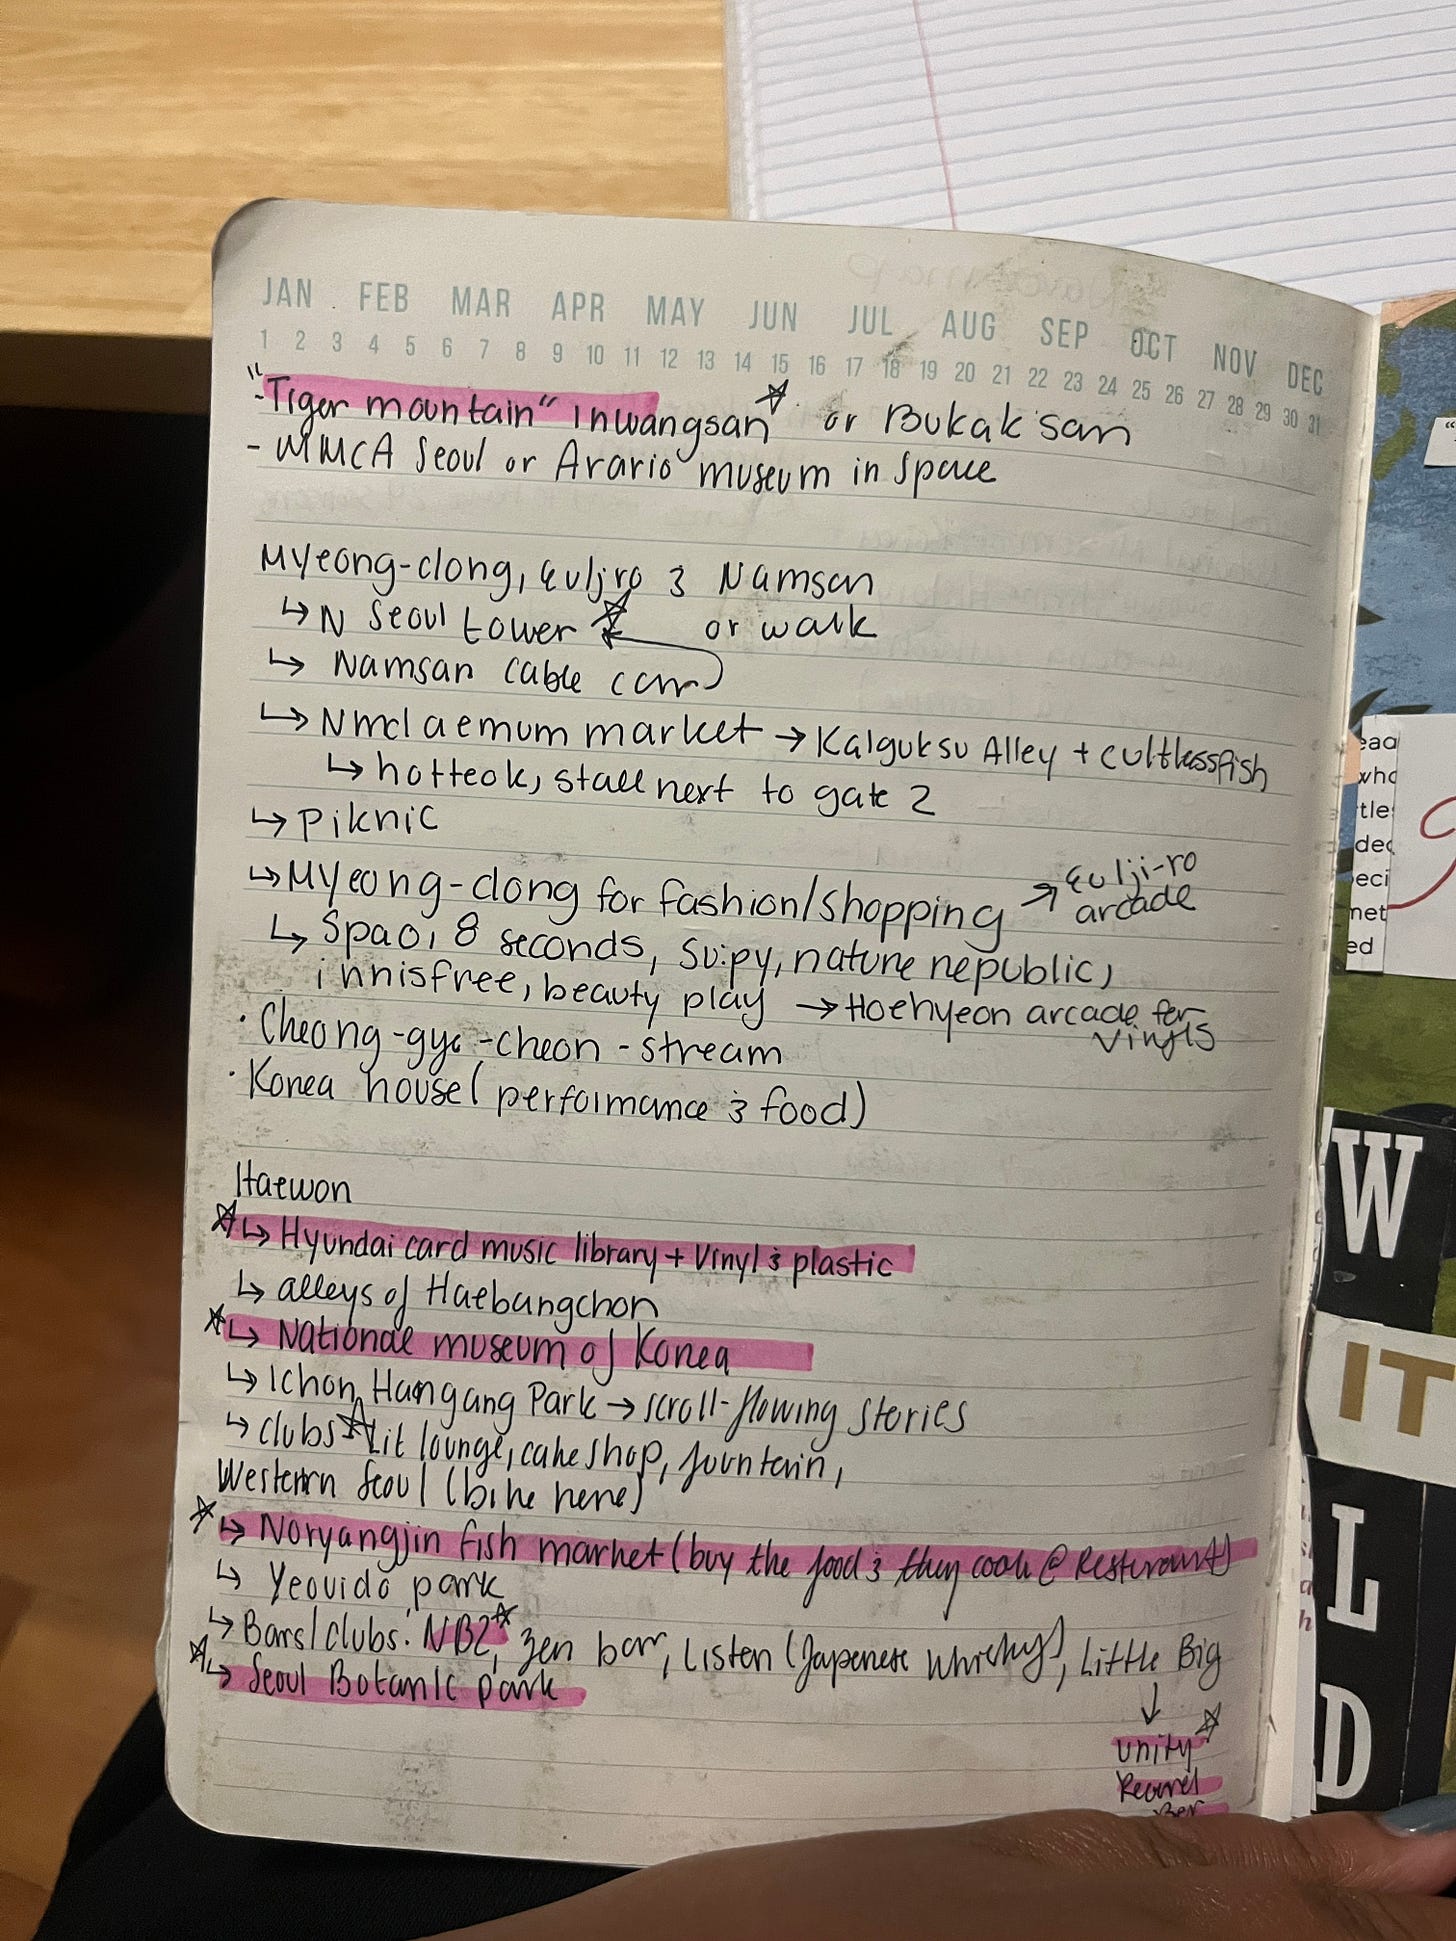 JAN FEB MAR APR MAY JUN JUL AUG SEP OCT NOV DEC
1 2 3 4 5 6 7 8 9 10 11 12 13 14 15 16 17 18 19 20 21 22 23 24 25 26 27 28 29 30 31
-"Tiger mountain" inwangsan or Bukak san
- MMCA Seoul or Arario museum in Space
Myeong-dong, Euljro & Namsan
↳ N Seoul tower or walk
↳ Namsan cable car
↳ Nmdaemum market → Kalguksu Alley + cultlassfish
↳ hotteok, stall next to gate 2
↳ Piknic
↳ Myeong-dong for fashion/shopping → Eulji-ro
arcade
↳ Spao, 8 seconds, Suipy, nature republic,
innisfree, beauty play → Hoehyeon arcade for
vinyls
· Cheong-gye-cheon-stream
· Korea house (performance & food)
Itaewon
↳ Hyundai card music library + Vinyl & plastic
↳ alleys of Haebangchon
↳ National museum of Korea
↳ Ichon Hangang Park → scroll-flowing stories
↳ clubs Lit lounge, cakeshop, fountain,
Western Seoul (bike here)
↳ Noryangjin fish market (buy the food & they cook @ Resturant)
↳ Yeouido park
↳ Bars/clubs: NB2, zen bar, Listen (Japenese Whisky), Little Big
↳ Seoul Botanic park
↓
Unity
Record
Bar
W
IT
L
D